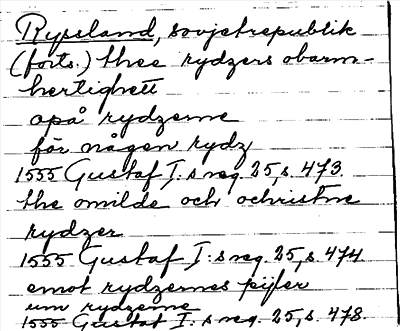 Ryssland, sovjetrepublik
(forts.) thee rydzers obarm-
hertighett
opå rydzerne
för någen rydz
1555 Gustaf I:s reg. 25, s. 473.
the omilde och ochristne
rydzer
1555 Gustaf I:s reg. 25, s. 474
emot rydzernes pijler
um rydzerne
1555 Gustaf I:s reg. 25, s. 478.